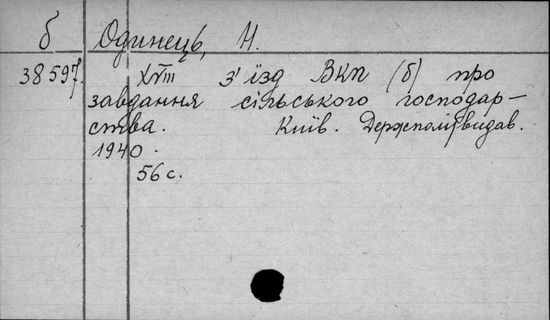 б Одинець, Н.
38597. XVIII з'їзд ВКП (б) про
завдання сільського господар-
ства. Київ. Держполітвидав.
1940.
56 с.